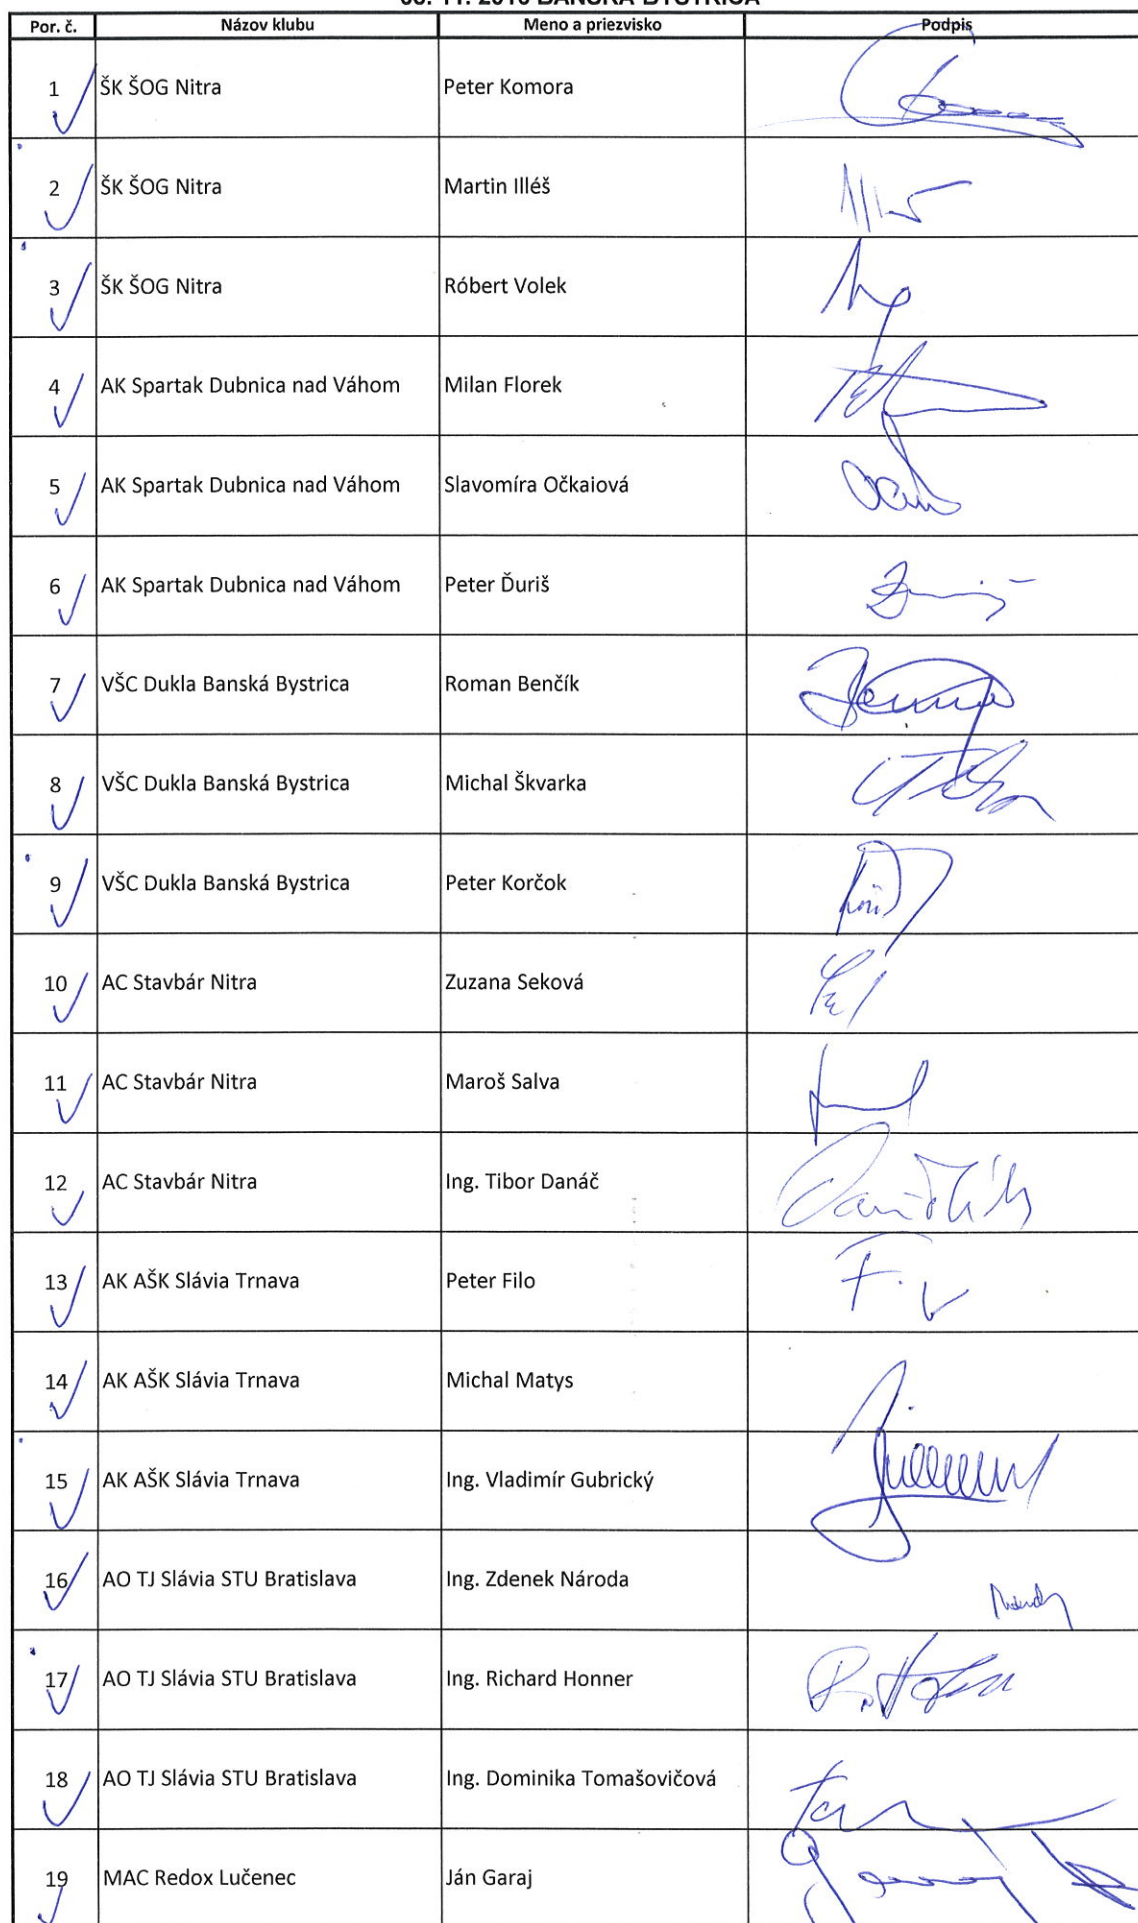 Por. č. Názov klubu Meno a priezvisko Podpis
1 ŠK ŠOG Nitra Peter Komora
2 ŠK ŠOG Nitra Martin Illéš
3 ŠK ŠOG Nitra Róbert Volek
4 AK Spartak Dubnica nad Váhom Milan Florek
5 AK Spartak Dubnica nad Váhom Slavomíra Očkaiová
6 AK Spartak Dubnica nad Váhom Peter Ďuriš
7 VŠC Dukla Banská Bystrica Roman Benčík
8 VŠC Dukla Banská Bystrica Michal Škvarka
9 VŠC Dukla Banská Bystrica Peter Korčok
10 AC Stavbár Nitra Zuzana Seková
11 AC Stavbár Nitra Maroš Salva
12 AC Stavbár Nitra Ing. Tibor Danáč
13 AK AŠK Slávia Trnava Peter Filo
14 AK AŠK Slávia Trnava Michal Matys
15 AK AŠK Slávia Trnava Ing. Vladimír Gubrický
16 AO TJ Slávia STU Bratislava Ing. Zdenek Národa
17 AO TJ Slávia STU Bratislava Ing. Richard Honner
18 AO TJ Slávia STU Bratislava Ing. Dominika Tomašovičová
19 MAC Redox Lučenec Ján Garaj